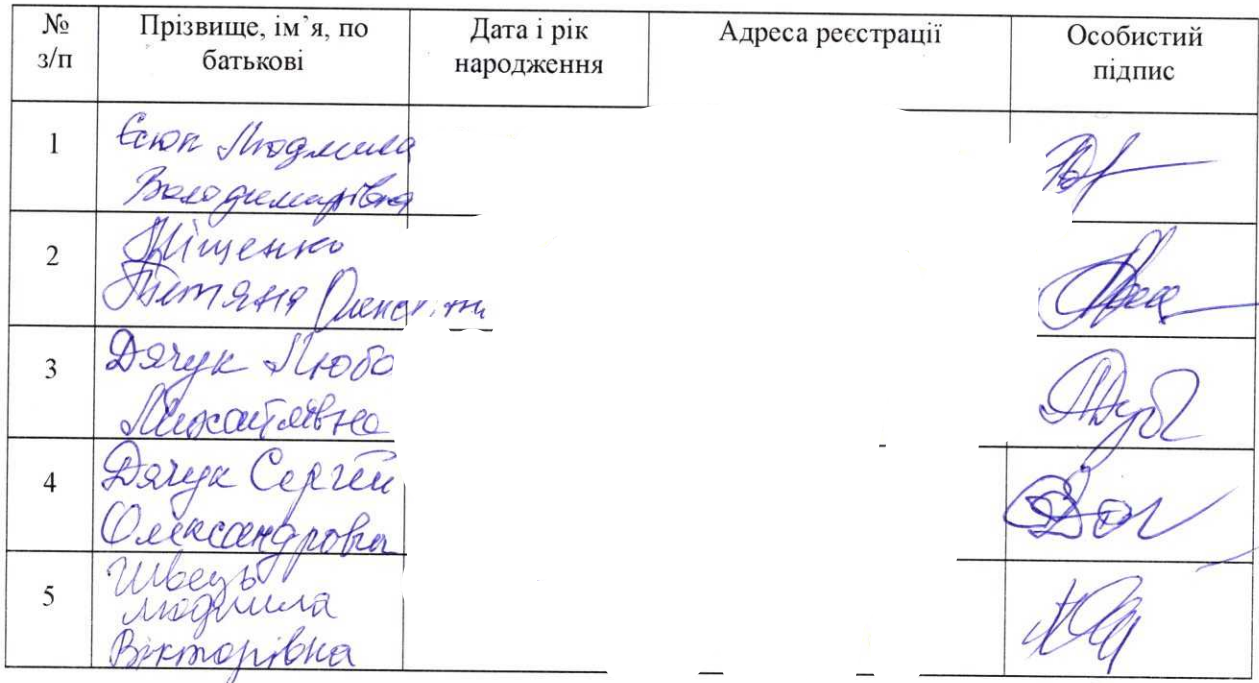 № з/п
Прізвище, ім’я, по батькові
Дата і рік народження
Адреса реєстрації
Особистий підпис
1
Єсюк Людмила
Володимирівна
2
Тіщенко
Тетяна
3
Дячук Люба
Михайлівна
4
Дячук Сергій
Олександрович
5
Швець
Людмила
Вікторівна